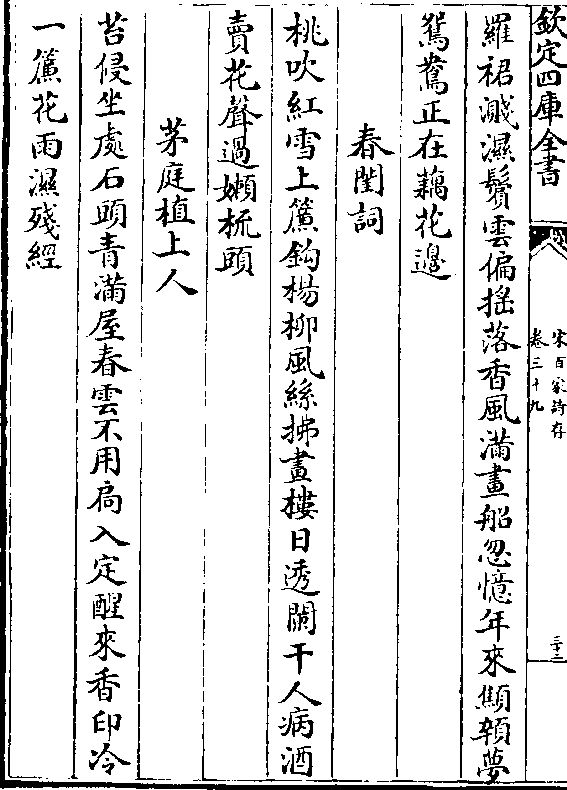 欽定四庫全書
宋百家詩存
卷三十九
三十二
羅裙濺濕鬢雲偏揺落香風滿畫船忽憶年來顦顇夢
鴛鴦正在藕花邊
春閨詞
桃吹紅雪上簾鈎楊柳風絲拂畫樓日透闌干人病酒
賣花聲過嬾梳頭
茅庭植上人
苔侵坐處石頭青滿屋春雲不用扃入定醒來香印冷
一簾花雨濕殘經